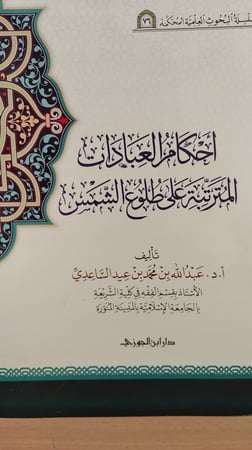 سلسلة البحوث العلمية المحكمة
٧٦
أحكام العبادات
المترتبة على طلوع الشمس
تأليف
أ.د. عبد الله بن محمد بن عيد الساعدي
الأستاذ بقسم الفقه في كلية الشريعة
بالجامعة الإسلامية بالمدينة المنورة
دار ابن الجوزي